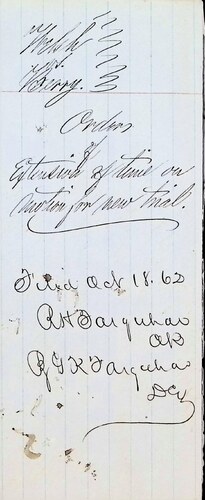 Welsh
vs.
Berry.
Order
of
Extension of time on
motion for new trial.
Filed Oct 18. 62
R H Farquhar
Clk
By G K Farquhar
DCy